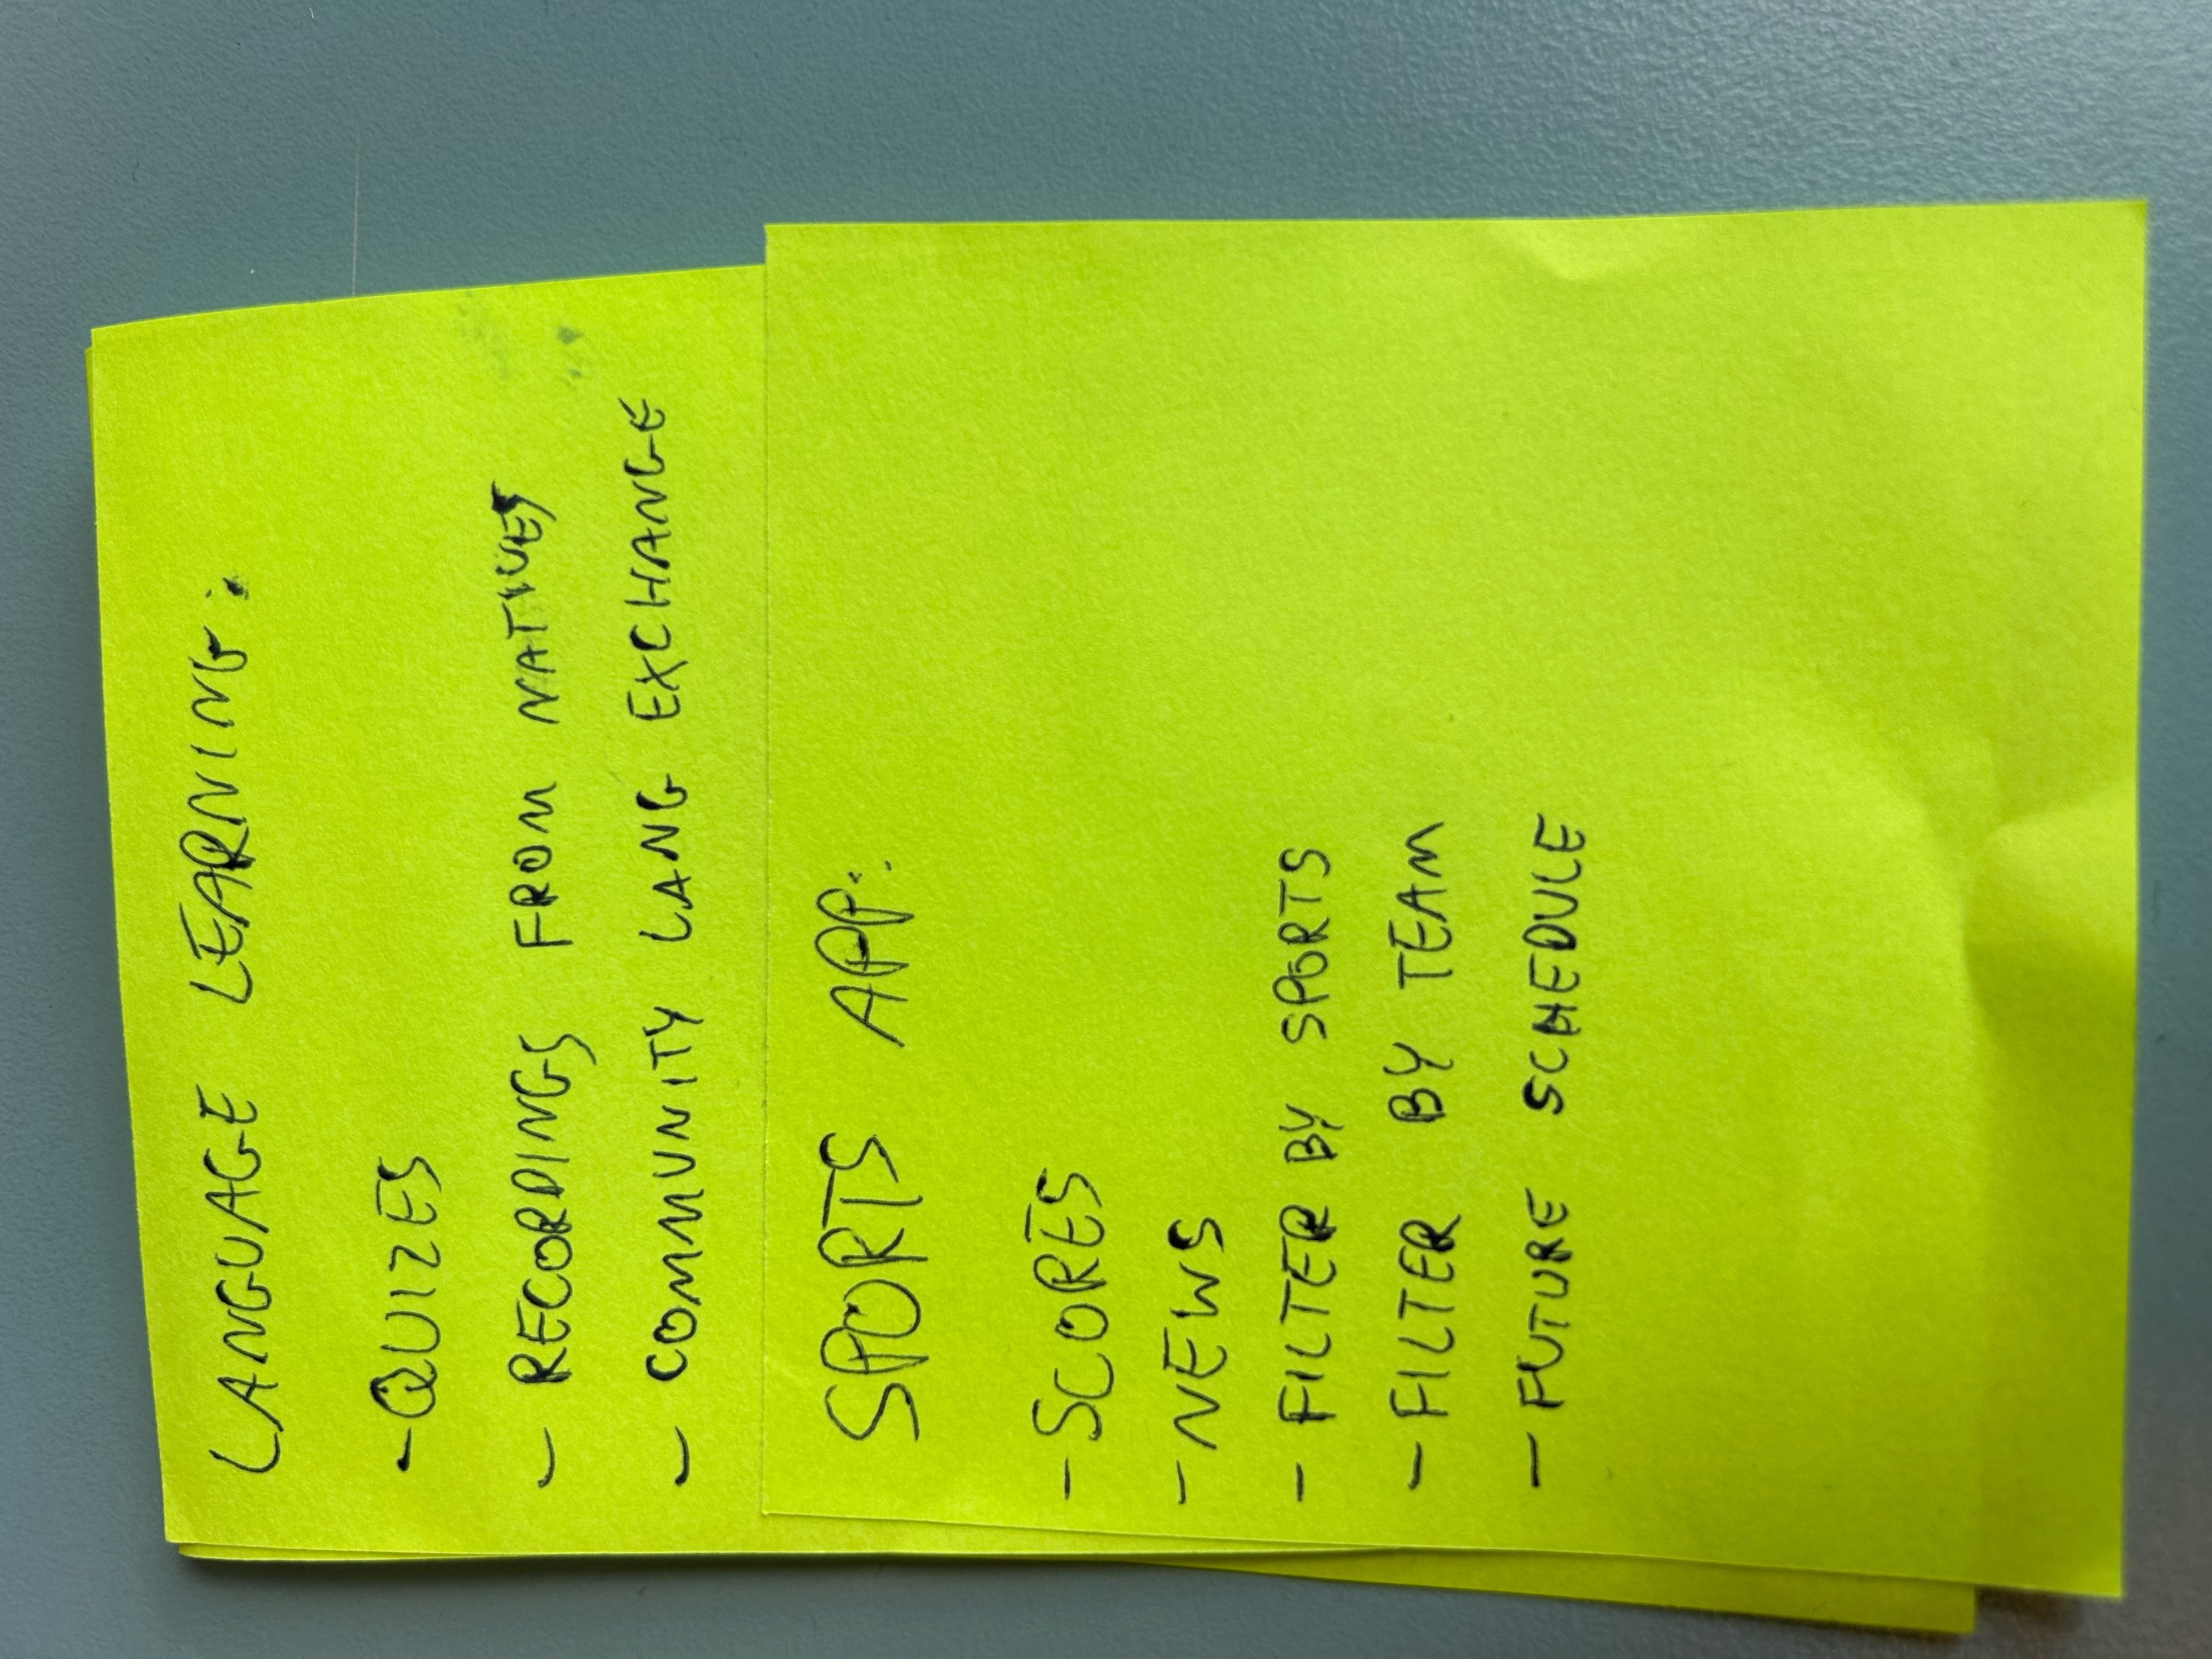 LANGUAGE LEARNING:
- QUIZES
- RECORDINGS FROM NATIVES
- COMMUNITY LANG EXCHANGE
SPORTS APP:
- SCORES
- NEWS
- FILTER BY SPORTS
- FILTER BY TEAM
- FUTURE SCHEDULE